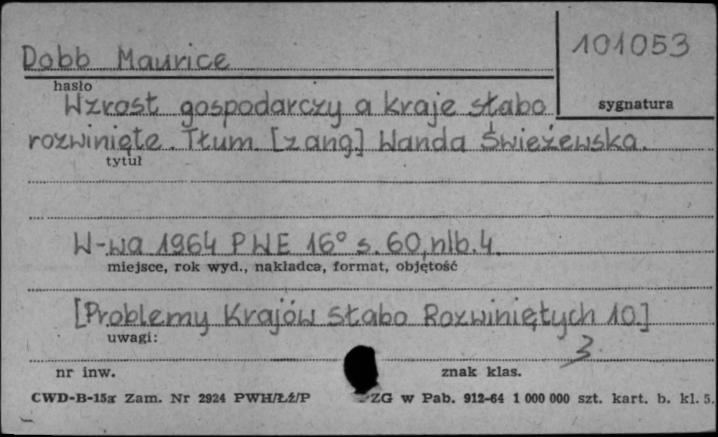 Dobb Maurice
101053
hasło
sygnatura
Wzrost gospodarczy a kraje słabo
rozwinięte. Tłum. [z ang.] Wanda Świeżewska.
tytuł
W-wa 1964 PWE 16° s. 60, nlb. 4.
miejsce, rok wyd., nakładca, format, objętość
[Problemy Krajów Słabo Rozwiniętych 10.]
uwagi:
3
nr inw.
znak klas.
CWD-B-15a Zam. Nr 2924 PWH/Łź/P
ZG w Pab. 912-64 1 000 000 szt. kart. b. kl. 5.